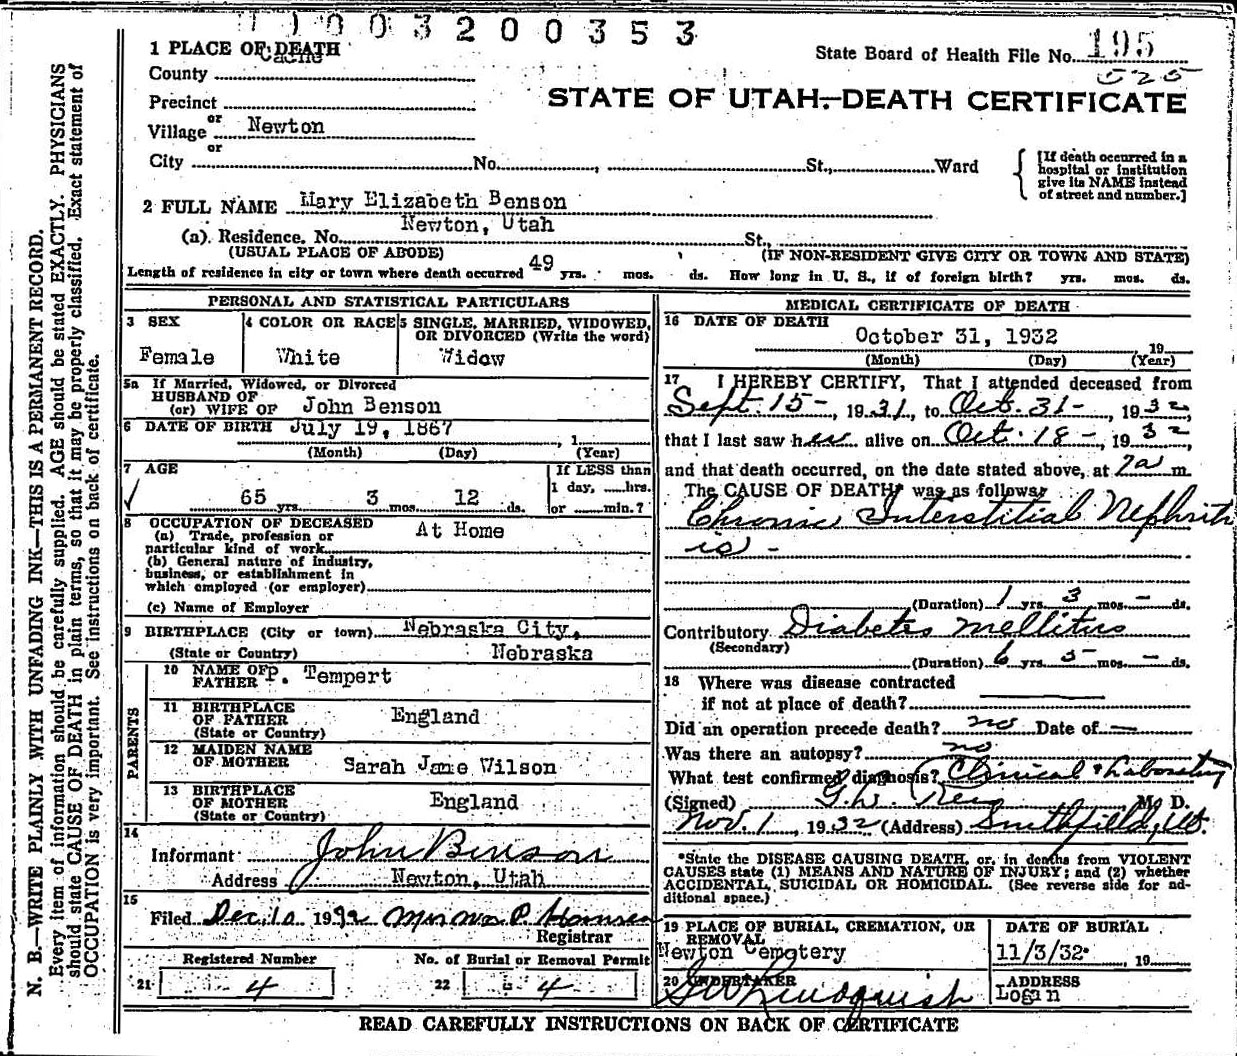 003200353
1 PLACE OF DEATH
Cache
County
State Board of Health File No. 195
525
STATE OF UTAH—DEATH CERTIFICATE
Precinct
or
Village Newton
or
City No. , St., Ward
[If death occurred in a hospital or institution give its NAME instead of street and number.]
2 FULL NAME Mary Elizabeth Benson
(a). Residence. No. Newton, Utah St.,
(USUAL PLACE OF ABODE) (IF NON-RESIDENT GIVE CITY OR TOWN AND STATE)
Length of residence in city or town where death occurred 49 yrs. mos. ds. How long in U. S., if of foreign birth? yrs. mos. ds.
PERSONAL AND STATISTICAL PARTICULARS
3 SEX 4 COLOR OR RACE 5 SINGLE, MARRIED, WIDOWED, OR DIVORCED (Write the word)
Female White Widow
5a If Married, Widowed, or Divorced
HUSBAND OF
(or) WIFE OF John Benson
6 DATE OF BIRTH July 19, 1867 , 1
(Month) (Day) (Year)
7 AGE If LESS than
1 day, hrs.
65 yrs. 3 mos. 12 ds. or min.?
8 OCCUPATION OF DECEASED At Home
(a) Trade, profession or
particular kind of work
(b) General nature of industry,
business, or establishment in
which employed (or employer)
(c) Name of Employer
9 BIRTHPLACE (City or town) Nebraska City,
(State or Country) Nebraska
PARENTS
10 NAME OF
FATHER P. Tempert
11 BIRTHPLACE
OF FATHER England
(State or Country)
12 MAIDEN NAME
OF MOTHER Sarah Jane Wilson
13 BIRTHPLACE
OF MOTHER England
(State or Country)
14
Informant John Benson
Address Newton, Utah
15
Filed Dec. 10 1932 P.
Registrar
Registered Number No. of Burial or Removal Permit
21 4 22 4
MEDICAL CERTIFICATE OF DEATH
16 DATE OF DEATH
October 31, 1932 19
(Month) (Day) (Year)
17 I HEREBY CERTIFY, That I attended deceased from
Sept. 15-, 1931, to Oct. 31-, 1932,
that I last saw her alive on Oct. 18-, 1932,
and that death occurred, on the date stated above, at 7a m.
The CAUSE OF DEATH* was as follows:
Chronic Interstitial Nephrit
is -
(Duration) 1 yrs. 3 mos. - ds.
Contributory Diabetes mellitus
(Secondary)
(Duration) 6 yrs. 5 mos. - ds.
18 Where was disease contracted
if not at place of death?
Did an operation precede death? no Date of —
Was there an autopsy? no
What test confirmed diagnosis? Clinical & Laboratory
(Signed) G.L. Rees M. D.
Nov. 1, 1932 (Address) Smithfield, Ut.
*State the DISEASE CAUSING DEATH, or, in deaths from VIOLENT
CAUSES state (1) MEANS AND NATURE OF INJURY; and (2) whether
ACCIDENTAL, SUICIDAL OR HOMICIDAL. (See reverse side for ad-
ditional space.)
19 PLACE OF BURIAL, CREMATION, OR
REMOVAL
Newton Cemetery
DATE OF BURIAL
11/3/32. , 19
20 UNDERTAKER
Lindquist
ADDRESS
Logan
READ CAREFULLY INSTRUCTIONS ON BACK OF CERTIFICATE
N. B.—WRITE PLAINLY WITH UNFADING INK—THIS IS A PERMANENT RECORD.
Every item of information should be carefully supplied. AGE should be stated EXACTLY. PHYSICIANS
should state CAUSE OF DEATH in plain terms, so that it may be properly classified. Exact statement of
OCCUPATION is very important. See instructions on back of certificate.